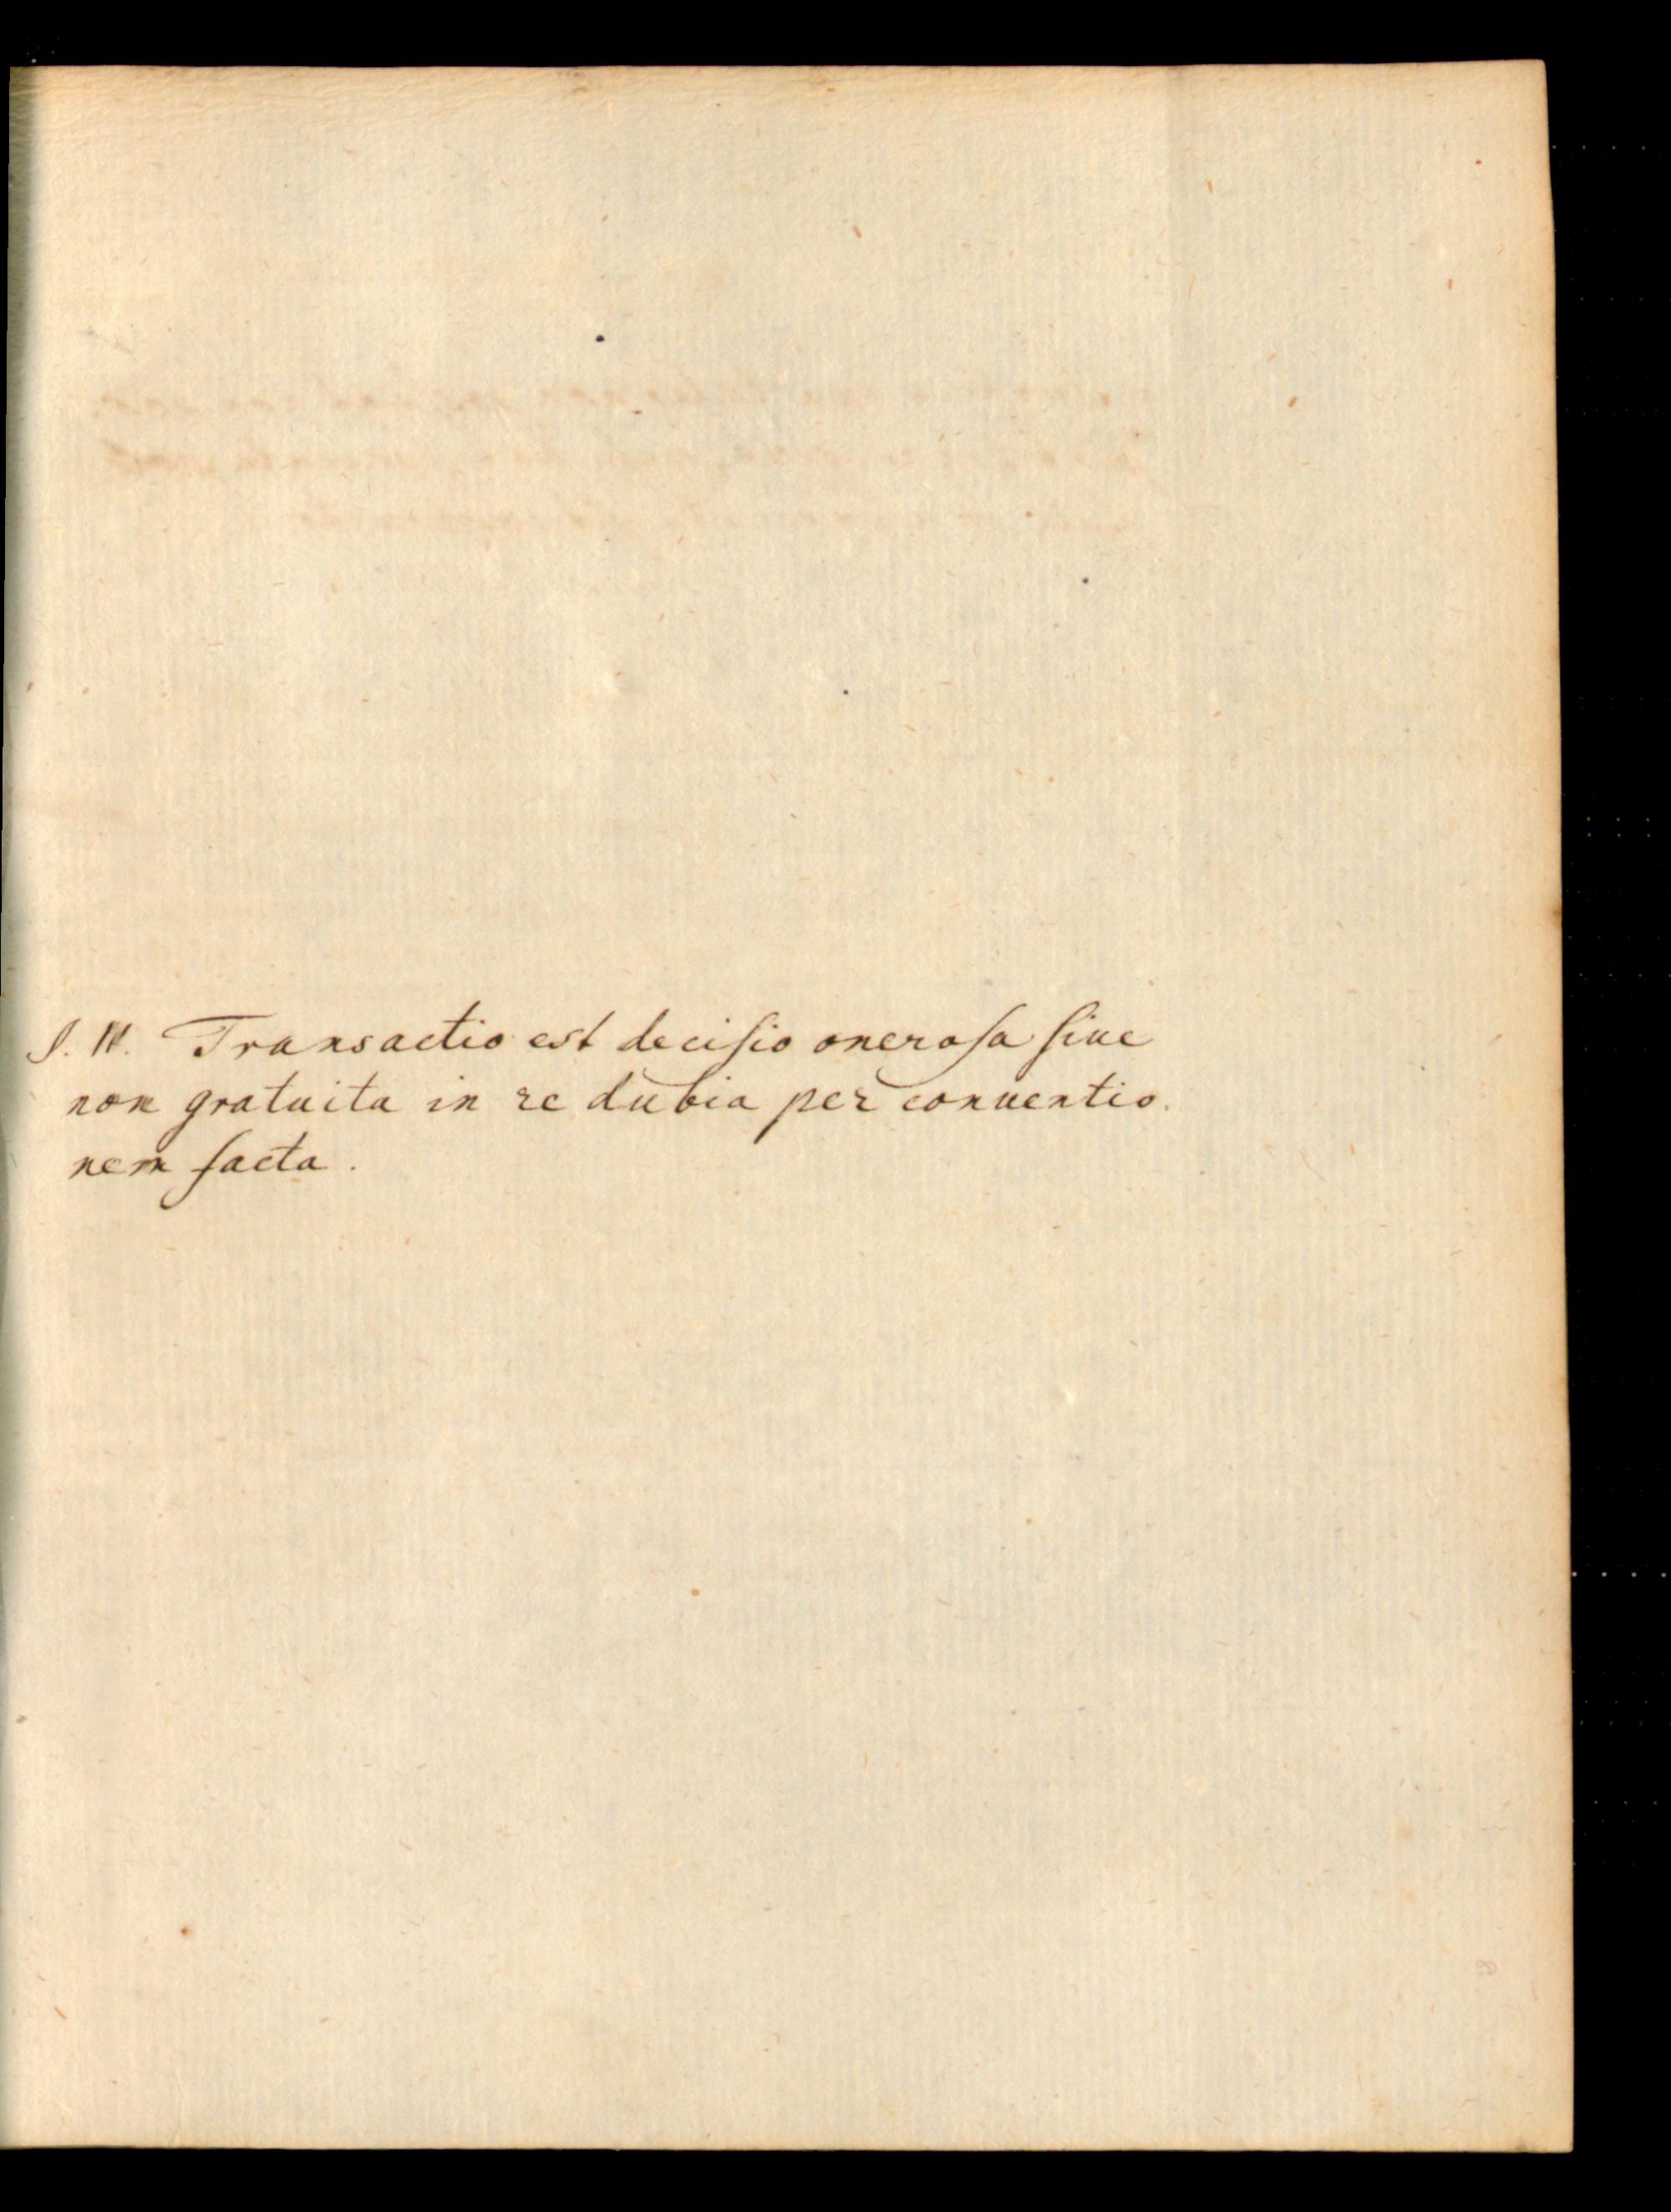 §. IV. Transactio est deciſio oneroſa ſiue
non gratuita in re dubia per conuentio.
nem facta.